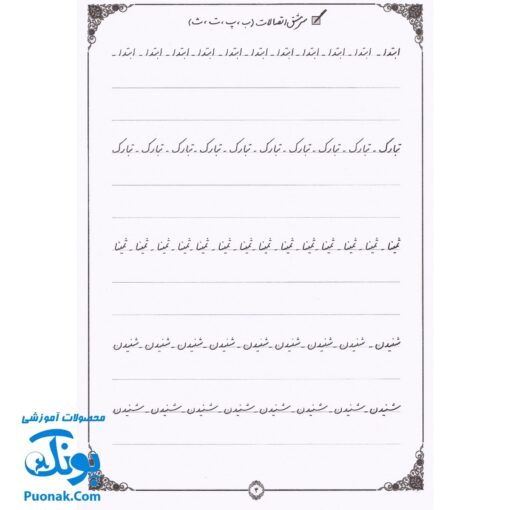 سرمشق اتصالات (ب ، پ ، ت ، ث)
ابتدا - ابتدا - ابتدا - ابتدا - ابتدا - ابتدا - ابتدا - ابتدا - ابتدا - ابتدا - ابتدا -
تبارک - تبارک - تبارک - تبارک - تبارک - تبارک - تبارک - تبارک - تبارک - تبارک
ثمینا - ثمینا - ثمینا - ثمینا - ثمینا - ثمینا - ثمینا - ثمینا - ثمینا - ثمینا - ثمینا - ثمینا - ثمینا - ثمینا
شنیدن - شنیدن - شنیدن - شنیدن - شنیدن - شنیدن - شنیدن - شنیدن - شنیدن
شنیدن - شنیدن - شنیدن - شنیدن - شنیدن - شنیدن - شنیدن - شنیدن
۳
محصولات آموزشی
پونک
Puonak.Com